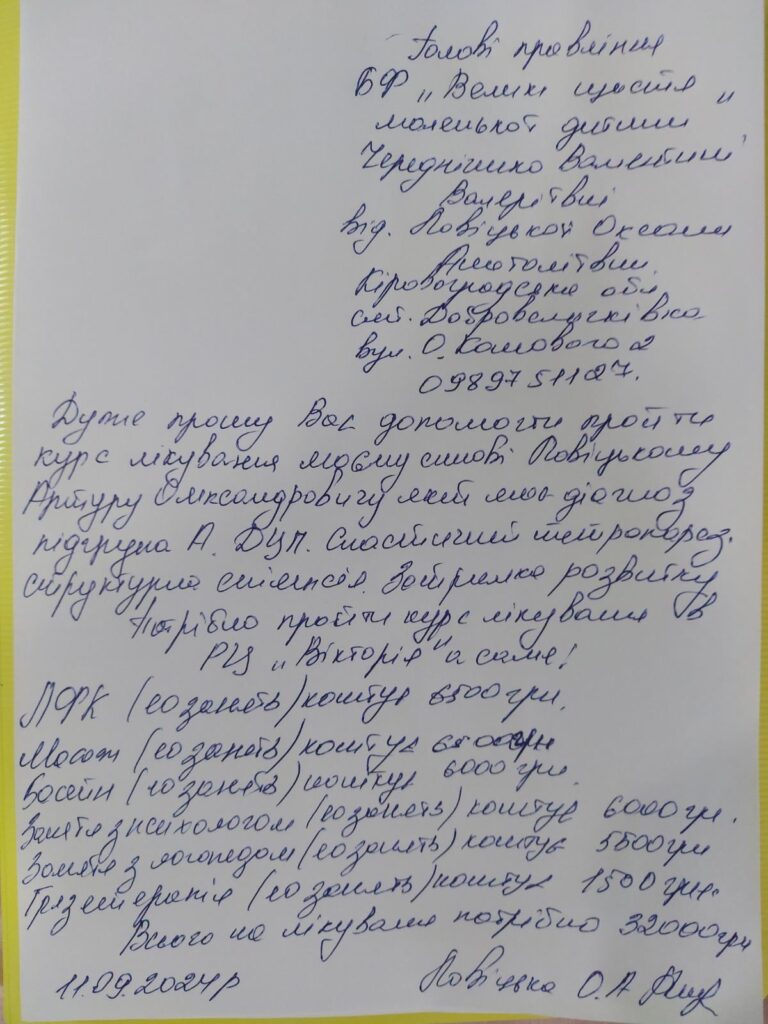 Голові правління
БФ „Велике щастя
маленької дитини"
Чередніченко Валентині
Валеріївні
від. Повіцької Оксани
Анатоліївни.
Кіровоградська обл
смт. Добровеличківка
вул. О. Кошового 2
0989751127.
Дуже прошу Вас допомогти пройти
курс лікування моєму синові Повіцькому
Артуру Олександровичу який має діагноз
підгрупа А. ДЦП. Спастичний тетрапарез.
структурна епілепсія. Затримка розвитку
Потрібно пройти курс лікування в
РЦ „Вікторія" а саме!
ЛФК (10 занять) коштує 6500 грн.
Масаж (10 занять) коштує 6500 грн
Басейн (10 занять) коштує 6000 грн
Заняття з психологом (10 занять) коштує 6000 грн.
Заняття з логопедом (10 занять) коштує 5500 грн
Грязетерапія (10 занять) коштує 1500 грн.
Всього на лікування потрібно 32000 грн
11.09.2024 р Повіцька О.А